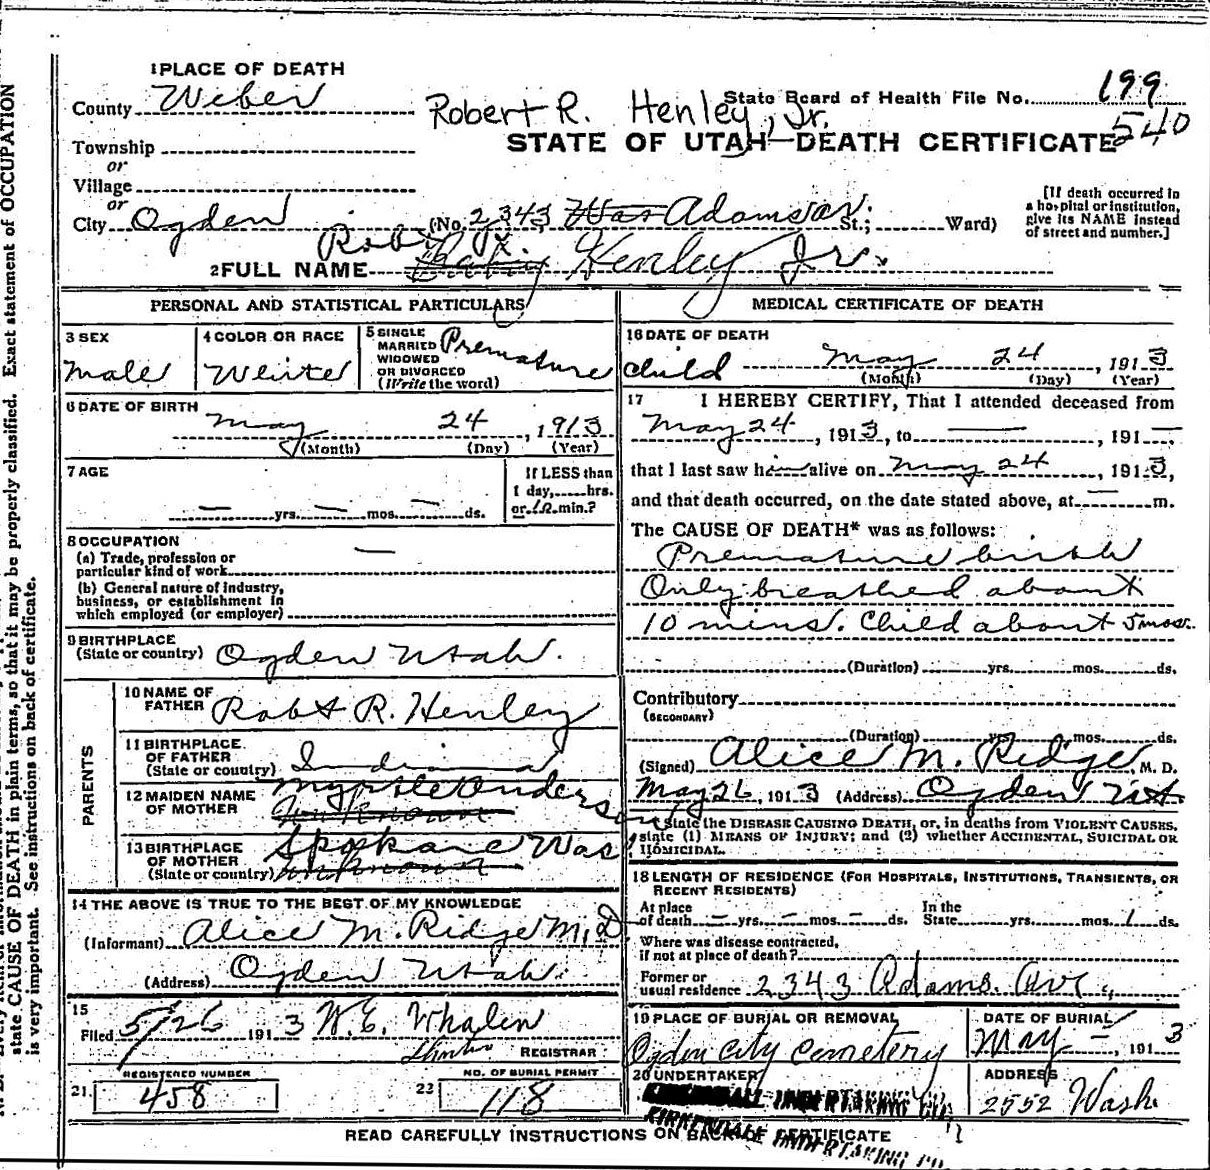 1 PLACE OF DEATH
County Weber
Robert R. Henley, Jr.
State Board of Health File No. 199
540
STATE OF UTAH—DEATH CERTIFICATE
Township
or
Village
or
City Ogden (No. 2343 Was Adams av. St.; Ward)
[If death occurred in a hospital or institution, give its NAME instead of street and number.]
Robt R
2 FULL NAME Baby Henley Jr.
PERSONAL AND STATISTICAL PARTICULARS
3 SEX
Male
4 COLOR OR RACE
White
5 SINGLE
MARRIED
WIDOWED
OR DIVORCED
(Write the word)
Premature
6 DATE OF BIRTH
May 24, 1913
(Month) (Day) (Year)
7 AGE
— yrs. — mos. — ds.
If LESS than
1 day, hrs.
or 10 min.?
8 OCCUPATION
(a) Trade, profession or
particular kind of work —
(b) General nature of industry,
business, or establishment in
which employed (or employer)
9 BIRTHPLACE
(State or country) Ogden Utah.
PARENTS
10 NAME OF
FATHER Robt R. Henley
11 BIRTHPLACE
OF FATHER
(State or country) Indiana
12 MAIDEN NAME
OF MOTHER Myrtle Anderson
Unknown
13 BIRTHPLACE
OF MOTHER
(State or country) Spokane Was
unknown
14 THE ABOVE IS TRUE TO THE BEST OF MY KNOWLEDGE
(Informant) Alice M. Ridge M.D
(Address) Ogden Utah.
15
Filed 5/26 1913 W.E. Whalen
REGISTRAR
REGISTERED NUMBER
21 458
NO. OF BURIAL PERMIT
22 118
MEDICAL CERTIFICATE OF DEATH
16 DATE OF DEATH
child May 24, 1913
(Month) (Day) (Year)
17 I HEREBY CERTIFY, That I attended deceased from
May 24, 1913, to —, 191—,
that I last saw h— alive on May 24, 1913,
and that death occurred, on the date stated above, at — m.
The CAUSE OF DEATH* was as follows:
Premature birth
Only breathed about
10 mins. Child about 5 mos.
(Duration) yrs. mos. ds.
Contributory
(SECONDARY)
(Duration) yrs. mos. ds.
(Signed) Alice M. Ridge, M. D.
May 26, 1913 (Address) Ogden Ut.
State the DISEASE CAUSING DEATH, or, in deaths from VIOLENT CAUSES,
state (1) MEANS OF INJURY; and (2) whether ACCIDENTAL, SUICIDAL OR
HOMICIDAL.
18 LENGTH OF RESIDENCE (FOR HOSPITALS, INSTITUTIONS, TRANSIENTS, OR
RECENT RESIDENTS)
At place
of death — yrs. — mos. — ds.
In the
State yrs. mos. 1 ds.
Where was disease contracted,
if not at place of death?
Former or
usual residence 2343 Adams. Ave.,
19 PLACE OF BURIAL OR REMOVAL
Ogden City Cemetery
DATE OF BURIAL
May —, 1913
20 UNDERTAKER
KIRKENDALL UNDERTAKING CO.
KIRKENDALE UNDERTAKING CO.
ADDRESS
2552 Wash.
READ CAREFULLY INSTRUCTIONS ON BACK OF CERTIFICATE
state CAUSE OF DEATH in plain terms, so that it may be properly classified. Exact statement of OCCUPATION
is very important. See instructions on back of certificate.